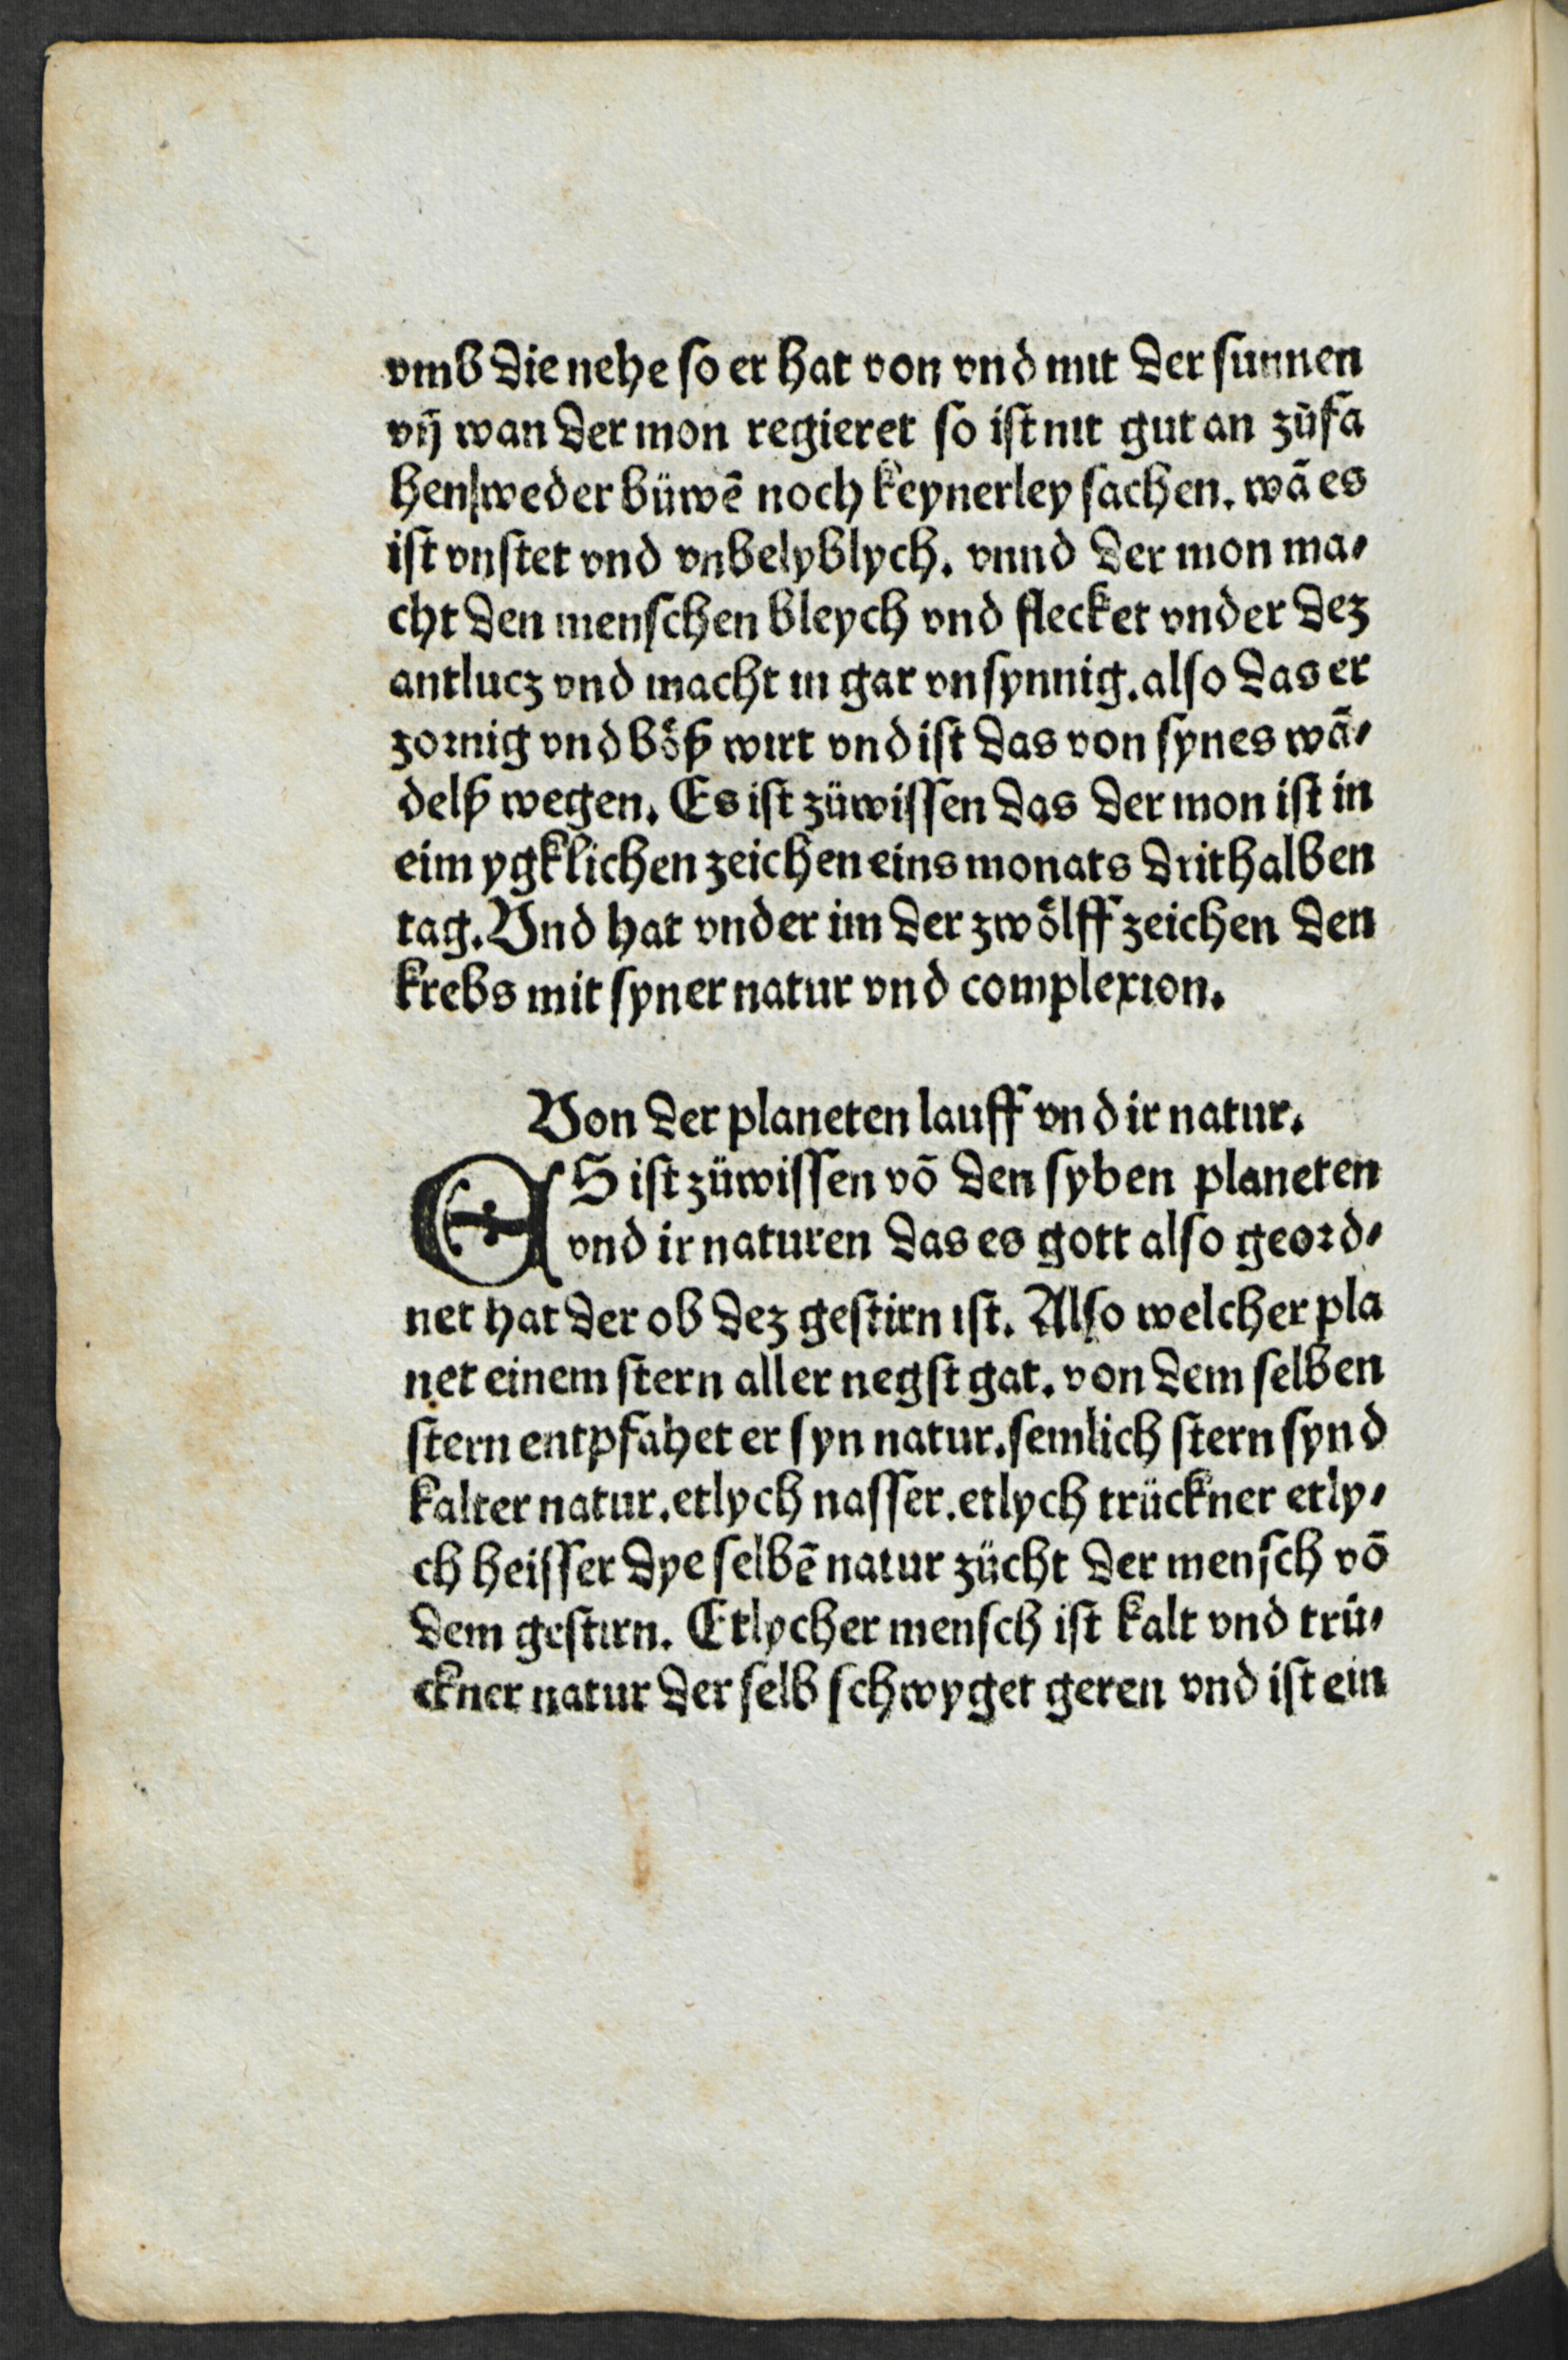 vmb die nehe so er hat von vnd mit der sunnen
vñ wan der mon regieret so ist nit gut an zůfa
hen/weder büwē noch keynerley sachen. wā es
ist vnstet vnd vnbelyblych. vnnd der mon ma⸗
cht den menschen bleych vnd flecket vnder dez
antlucz vnd macht in gar vnsynnig. also das er
zornig vnd böß wirt vnd ist das von synes wā⸗
delß wegen. Es ist züwissen das der mon ist in
eim ygklichen zeichen eins monats drithalben
tag. Vnd hat vnder im der zwölff zeichen den
krebs mit syner natur vnd complexion.
Von der planeten lauff vnd ir natur.
ES ist züwissen vō den syben planeten
vnd ir naturen das es gott also geord⸗
net hat der ob dez gestirn ist. Also welcher pla
net einem stern aller negst gat. von dem selben
stern entpfahet er syn natur. semlich stern synd
kalter natur. etlych nasser. etlych trückner etly⸗
ch heisser dye selbē natur zücht der mensch vō
dem gestirn. Etlycher mensch ist kalt vnd trü⸗
ckner natur der selb schwyget geren vnd ist ein